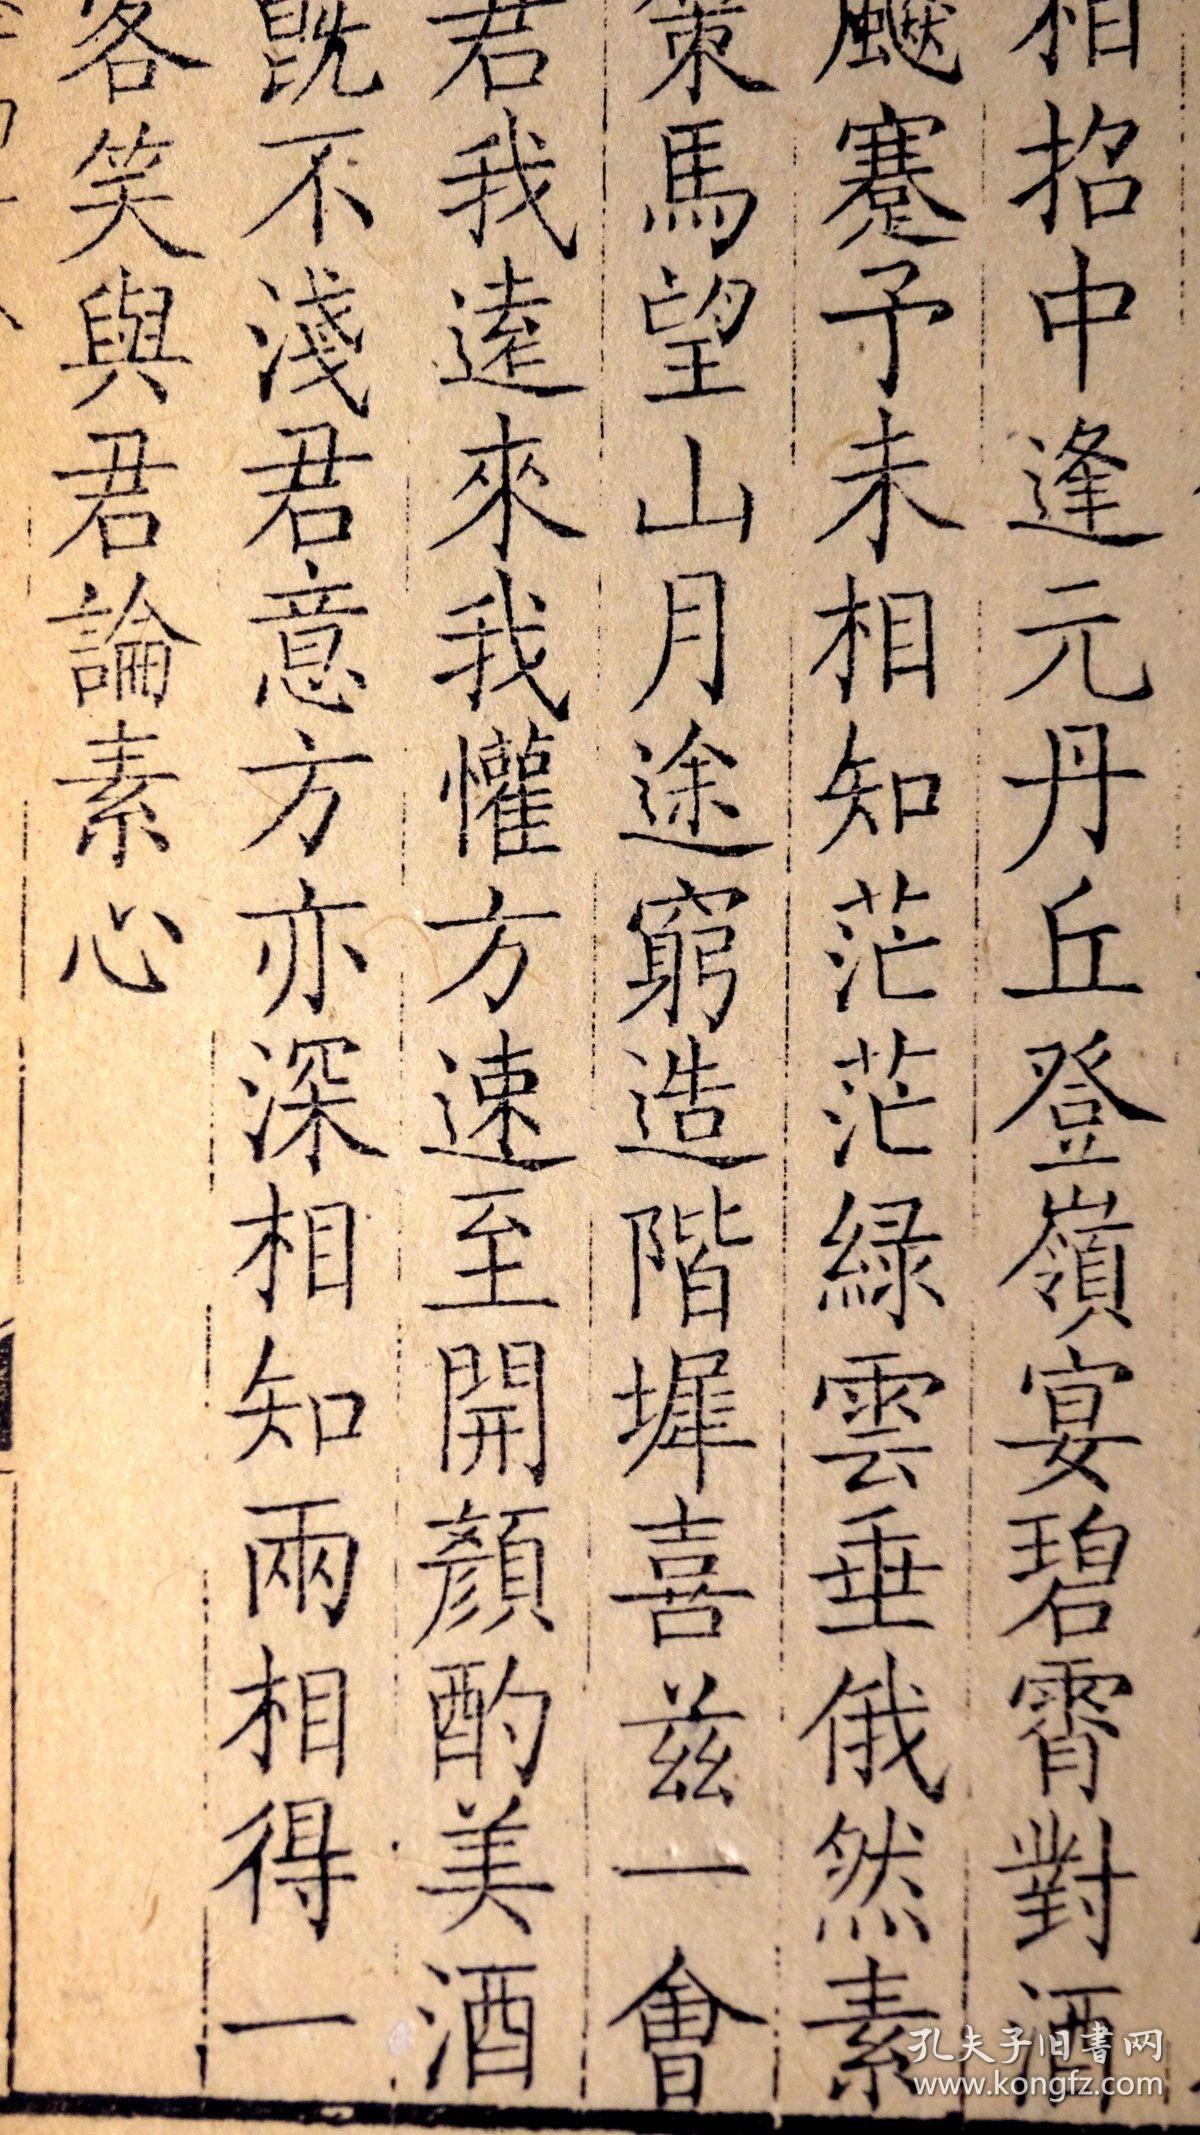 相招中逢元丹丘登嶺宴碧霄對酒
飈蹇予未相知茫茫緑雲垂俄然素
策馬望山月途窮造階墀喜兹一會
君我遠來我懽方速至開顔酌美酒
既不淺君意方亦深相知兩相得一
客笑與君論素心
孔夫子旧书网
www.kongfz.com